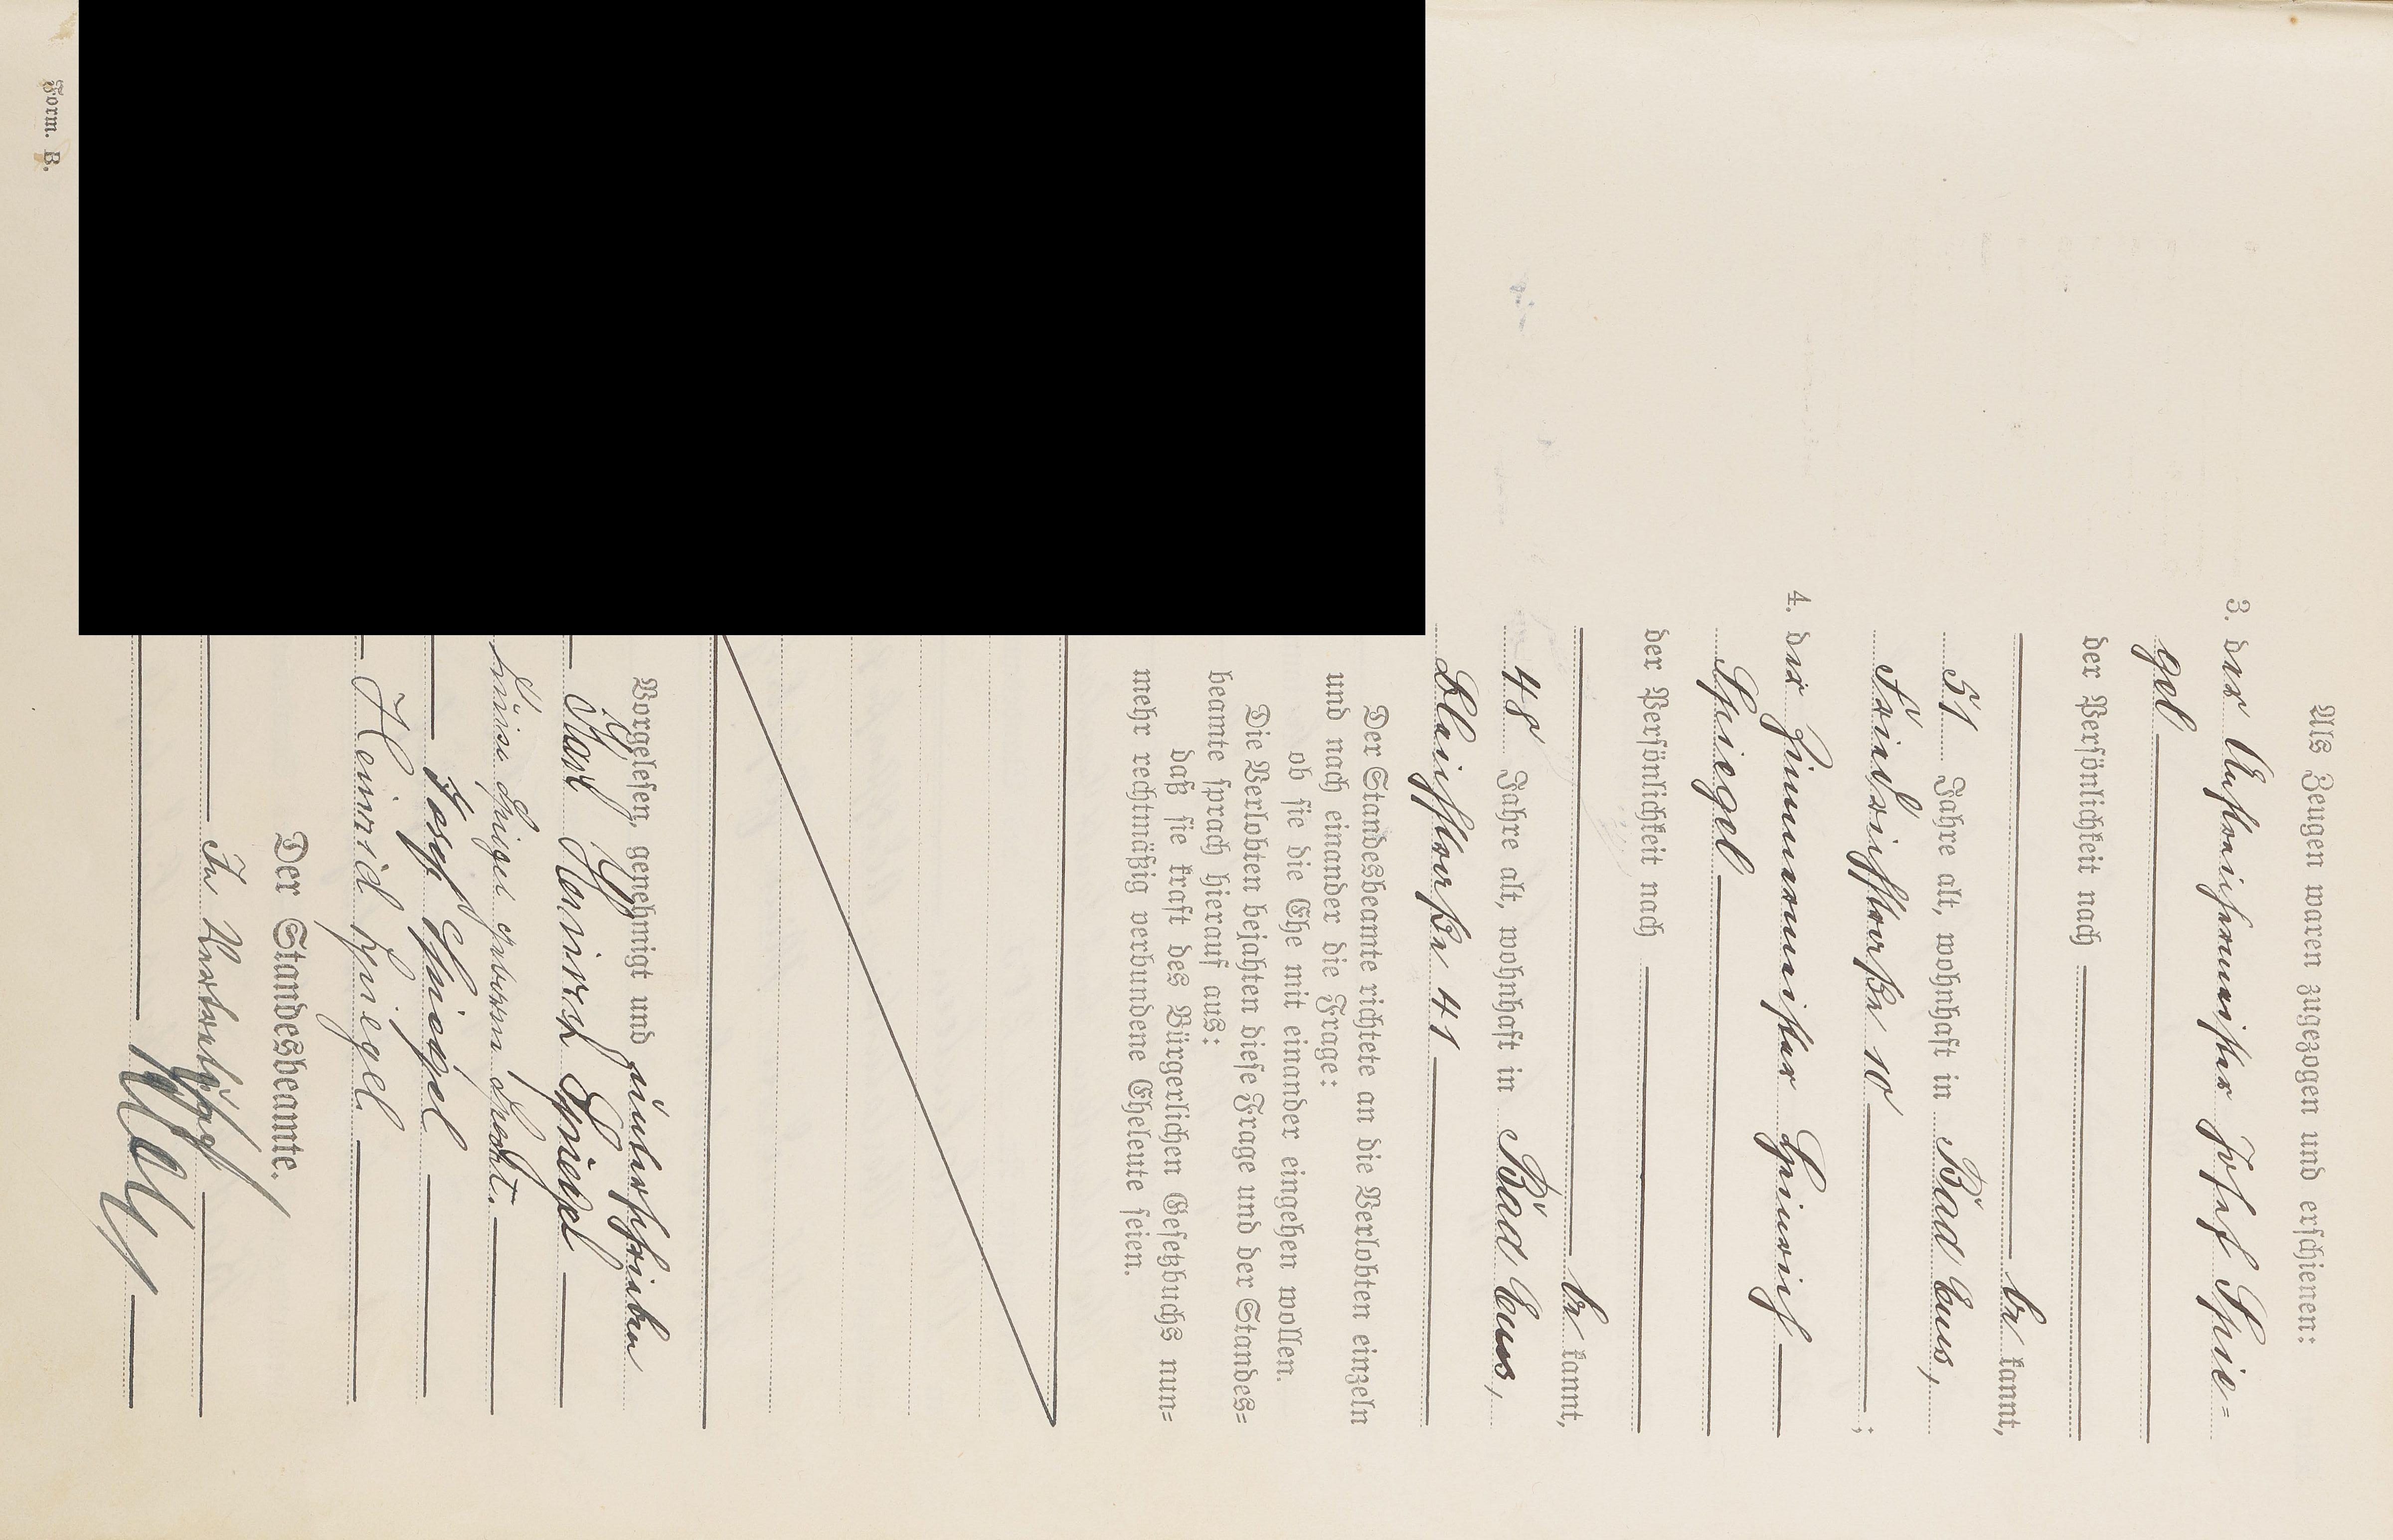 Als Zeugen waren zugezogen und erschienen:
3. der Anstreichermeister Josef Spie=
gel
der Persönlichkeit nach
be kannt,
51 Jahre alt, wohnhaft in Bad Ems,
Friedrichstraße 10 ;
4. der Zimmermeister Heinrich
Spiegel
der Persönlichkeit nach
be kannt,
48 Jahre alt, wohnhaft in Bad Ems,
Bleichstraße 41
Der Standesbeamte richtete an die Verlobten einzeln
und nach einander die Frage:
ob sie die Ehe mit einander eingehen wollen.
Die Verlobten bejahten diese Frage und der Standes=
beamte sprach hierauf aus:
daß sie kraft des Bürgerlichen Gesetzbuchs nun=
mehr rechtmäßig verbundene Eheleute seien.
Vorgelesen, genehmigt und unterschrieben
Karl Heinrich Spiegel
Luise Spiegel geborene
Josef Spiegel
Heinrich Spiegel
Der Standesbeamte.
In Vertretung
Form. B.